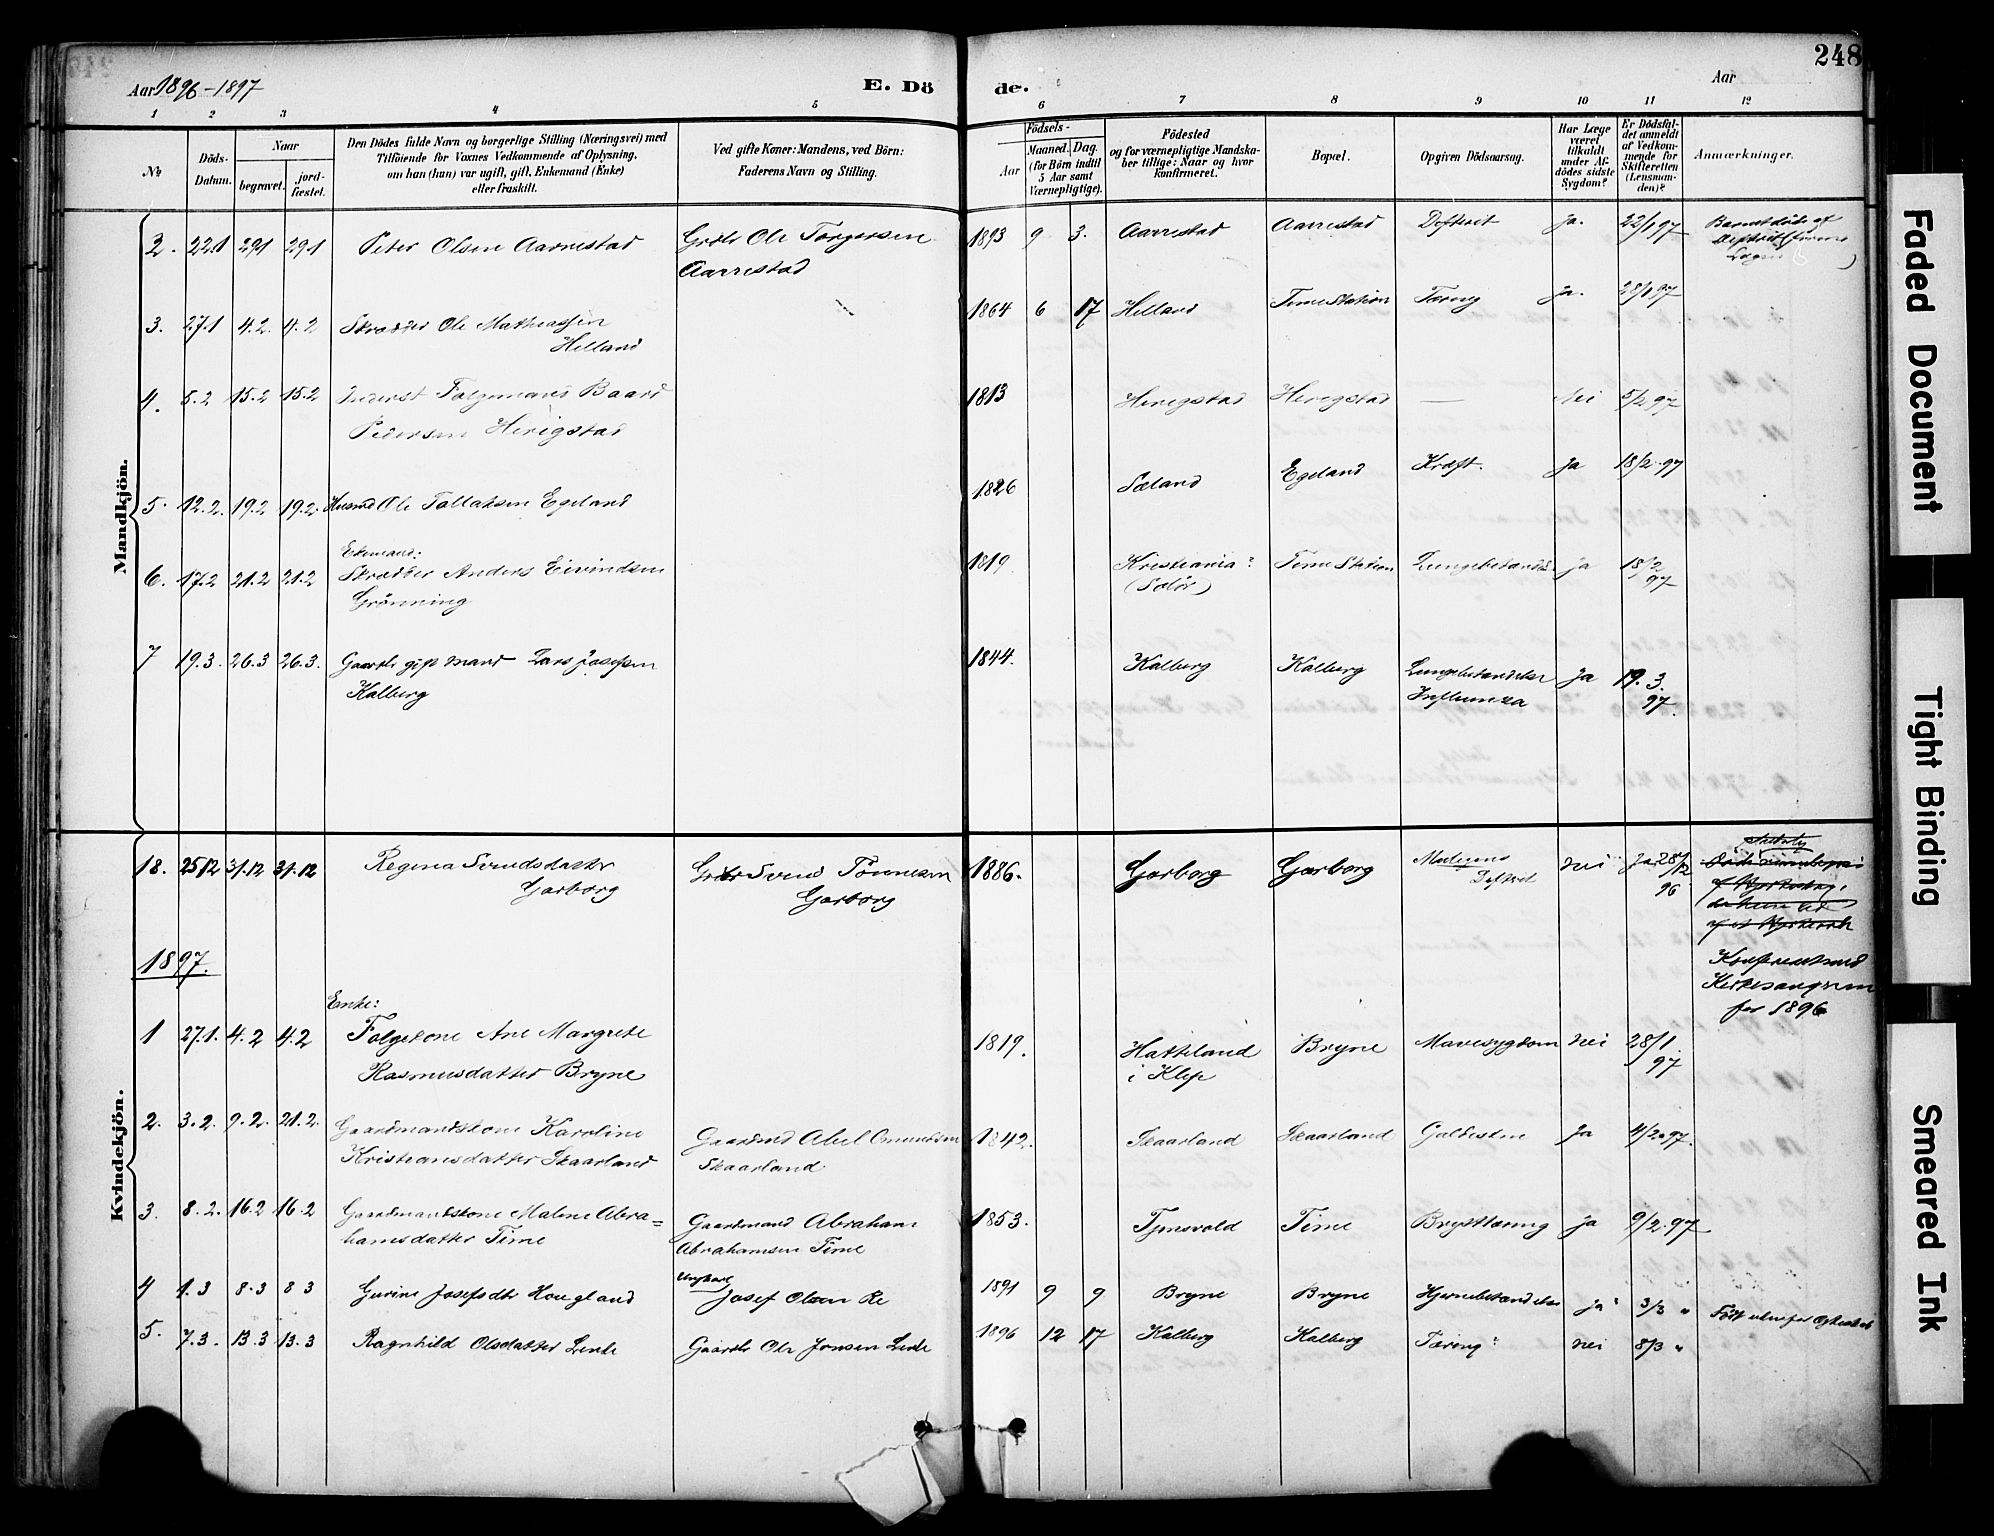 248
Aar 1896-1897
E. Dö
de.
Aar
1 2 3 4 5 6 7 8 9 10 11 12
No
Döds-
Datum.
Naar
begravet.
jord-
fæstet.
Den Dödes fulde Navn og borgerlige Stilling (Næringsvei) med
Tilföiende for Voxnes Vedkommende af Oplysning,
om han (hun) var ugift, gift, Enkemand (Enke)
eller fraskilt.
Ved gifte Koner: Mandens, ved Börn:
Faderens Navn og Stilling.
Födsels-
Aar
Maaned. Dag.
(for Börn indtil
5 Aar samt
Værnepligtige).
Födested
og for værnepligtige Mandska-
ber tillige: Naar og hvor
konfirmeret.
Bopæl.
Opgiven Dödsaarsag.
Har Læge
været
tilkaldt
under Af-
dödes sidste
Sygdom?
Er Dödsfal-
det anmeldt
af Vedkom-
mende for
Skifteretten
(Lensman-
den)?
Anmærkninger.
Mandkjön.
2. 22.1 29.1 29.1 Peter Olsen Aarrestad Grbr Ole Torgersen 1893 9 3. Aarrestad Aarrestad Defterit Ja. 22/1 97
Aarrestad
3. 27.1 4.2. 4.2 Skrædder Ole Mathiassen 1864 6 17 Helland Time Station Tæring Ja. 28/1 97
Helland
4. 5.2 15.2 15.2 Inderst Folgemand Baard 1813 Herigstad Herigstad — Nei 5/2 97
Pedersen Herigstad
5. 12.2. 19.2 19.2. Husmd Ole Tollaksen Egeland 1826 Sæland Egeland Kræft. Ja 18/2 97
Enkemand:
6. 17.2 21.2 21.2 Skrædder Anders Eivindsen 1819 Kristiania? Time Station Lungebetændels. ja 18/2 97
Grönning (Solör)
7 19.3. 26.3 26.3. Gaardbr gift mand Lars Josefsen 1844. Kalberg Kalberg Lungebetændelse Ja 19.3.97.
Kalberg Influenza
Kvindekjön.
18. 25.12 31.12 31.12 Regina Svendsdatter Grbr Svend Tönnesen 1886. Garborg Garborg Defterit nei Ja 28/12 96
Garborg Garborg
Konfereret med
Kirkesangeren
for 1896
1897.
Enke:
1 27.1. 4.2 4.2 Folgekone Ane Margrete 1819. Hatteland Bryne Mavesygdom nei 28/1 97
Rasmusdatter Bryne i Klep
2. 3.2. 9.2. 21.2. Gaardmandskone Karoline Gaardmd Abel Omundsen 1842. Skaarland Skaarland Galdesten Ja 4/2 97.
Kristiansdatter Skaarland Skaarland
3. 8.2. 16.2 16.2 Gaardmandskone Malene Abra= Gaardmand Abraham 1853. Tjensvold Time Brysttæring ja 9/2 97
hamsdatter Time Abrahamsen Time
4 1.3 8.3 8 3 Gurine Josefsdtr Haugland Ungkarl Josef Olsen Re 1891 9 9 Bryne Bryne Hjernebetændelse ja 3/3 " Födt udenfor Ægteskab
5. 7.3. 13.3 13.3 Ragnhild Olsdatter Line Gaardbr Ole Jonsen Line 1896 12 17 Kalberg Kalberg Tæring? nei 8/3 "
Faded Document
Tight Binding
Smeared Ink